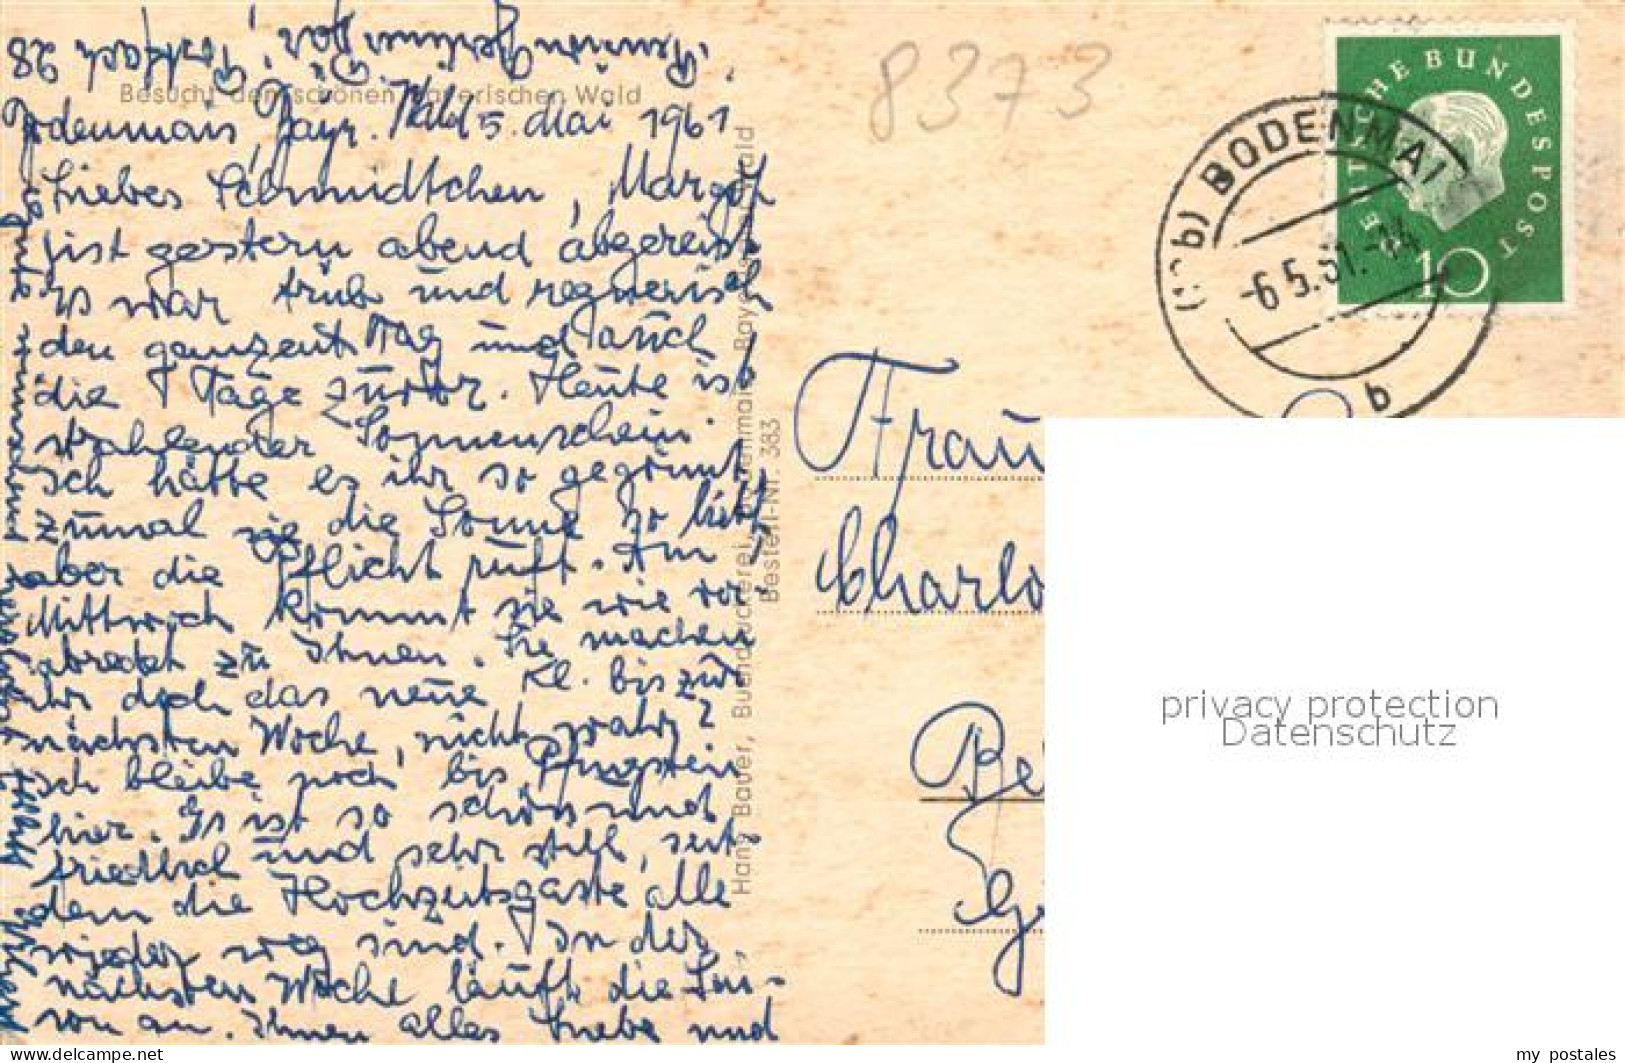 Pension Berliner Bär, Postfach 28
Besucht den schönen Bayerischen Wald
Bodenmais, Bayr. Wald 5. Mai 1961
Liebes Schmidtchen, Margot
ist gestern abend abgereist
Es war trüb und regnerisch
den ganzen Tag und auch
die Tage zuvor. Heute ist
strahlender Sonnenschein.
Ich hätte es ihr so gegönnt,
zumal sie die Sonne so liebt
aber die Pflicht ruft. Am
Mittwoch kommt sie wie ver-
abredet zu Ihnen. Sie machen
ihr doch das neue Kl. bis zur
nächsten Woche, nicht wahr?
Ich bleibe noch bis Pfingsten
hier. Es ist so schön und
friedlich und sehr still, seit-
dem die Hochzeitsgäste alle
wieder weg sind. In der
nächsten Woche läuft die Sai-
son an. Ihnen alles Liebe und
Gute
Hans Bauer, Buchdruckerei, Bodenmais, Bayer. Wald
Bestell-Nr. 383
8373
DEUTSCHE BUNDESPOST
10
BODENMAIS
-6.5.61.-14
b
Frau
Charlo
Be
G
privacy protection
Datenschutz
my postales
www.delcampe.net